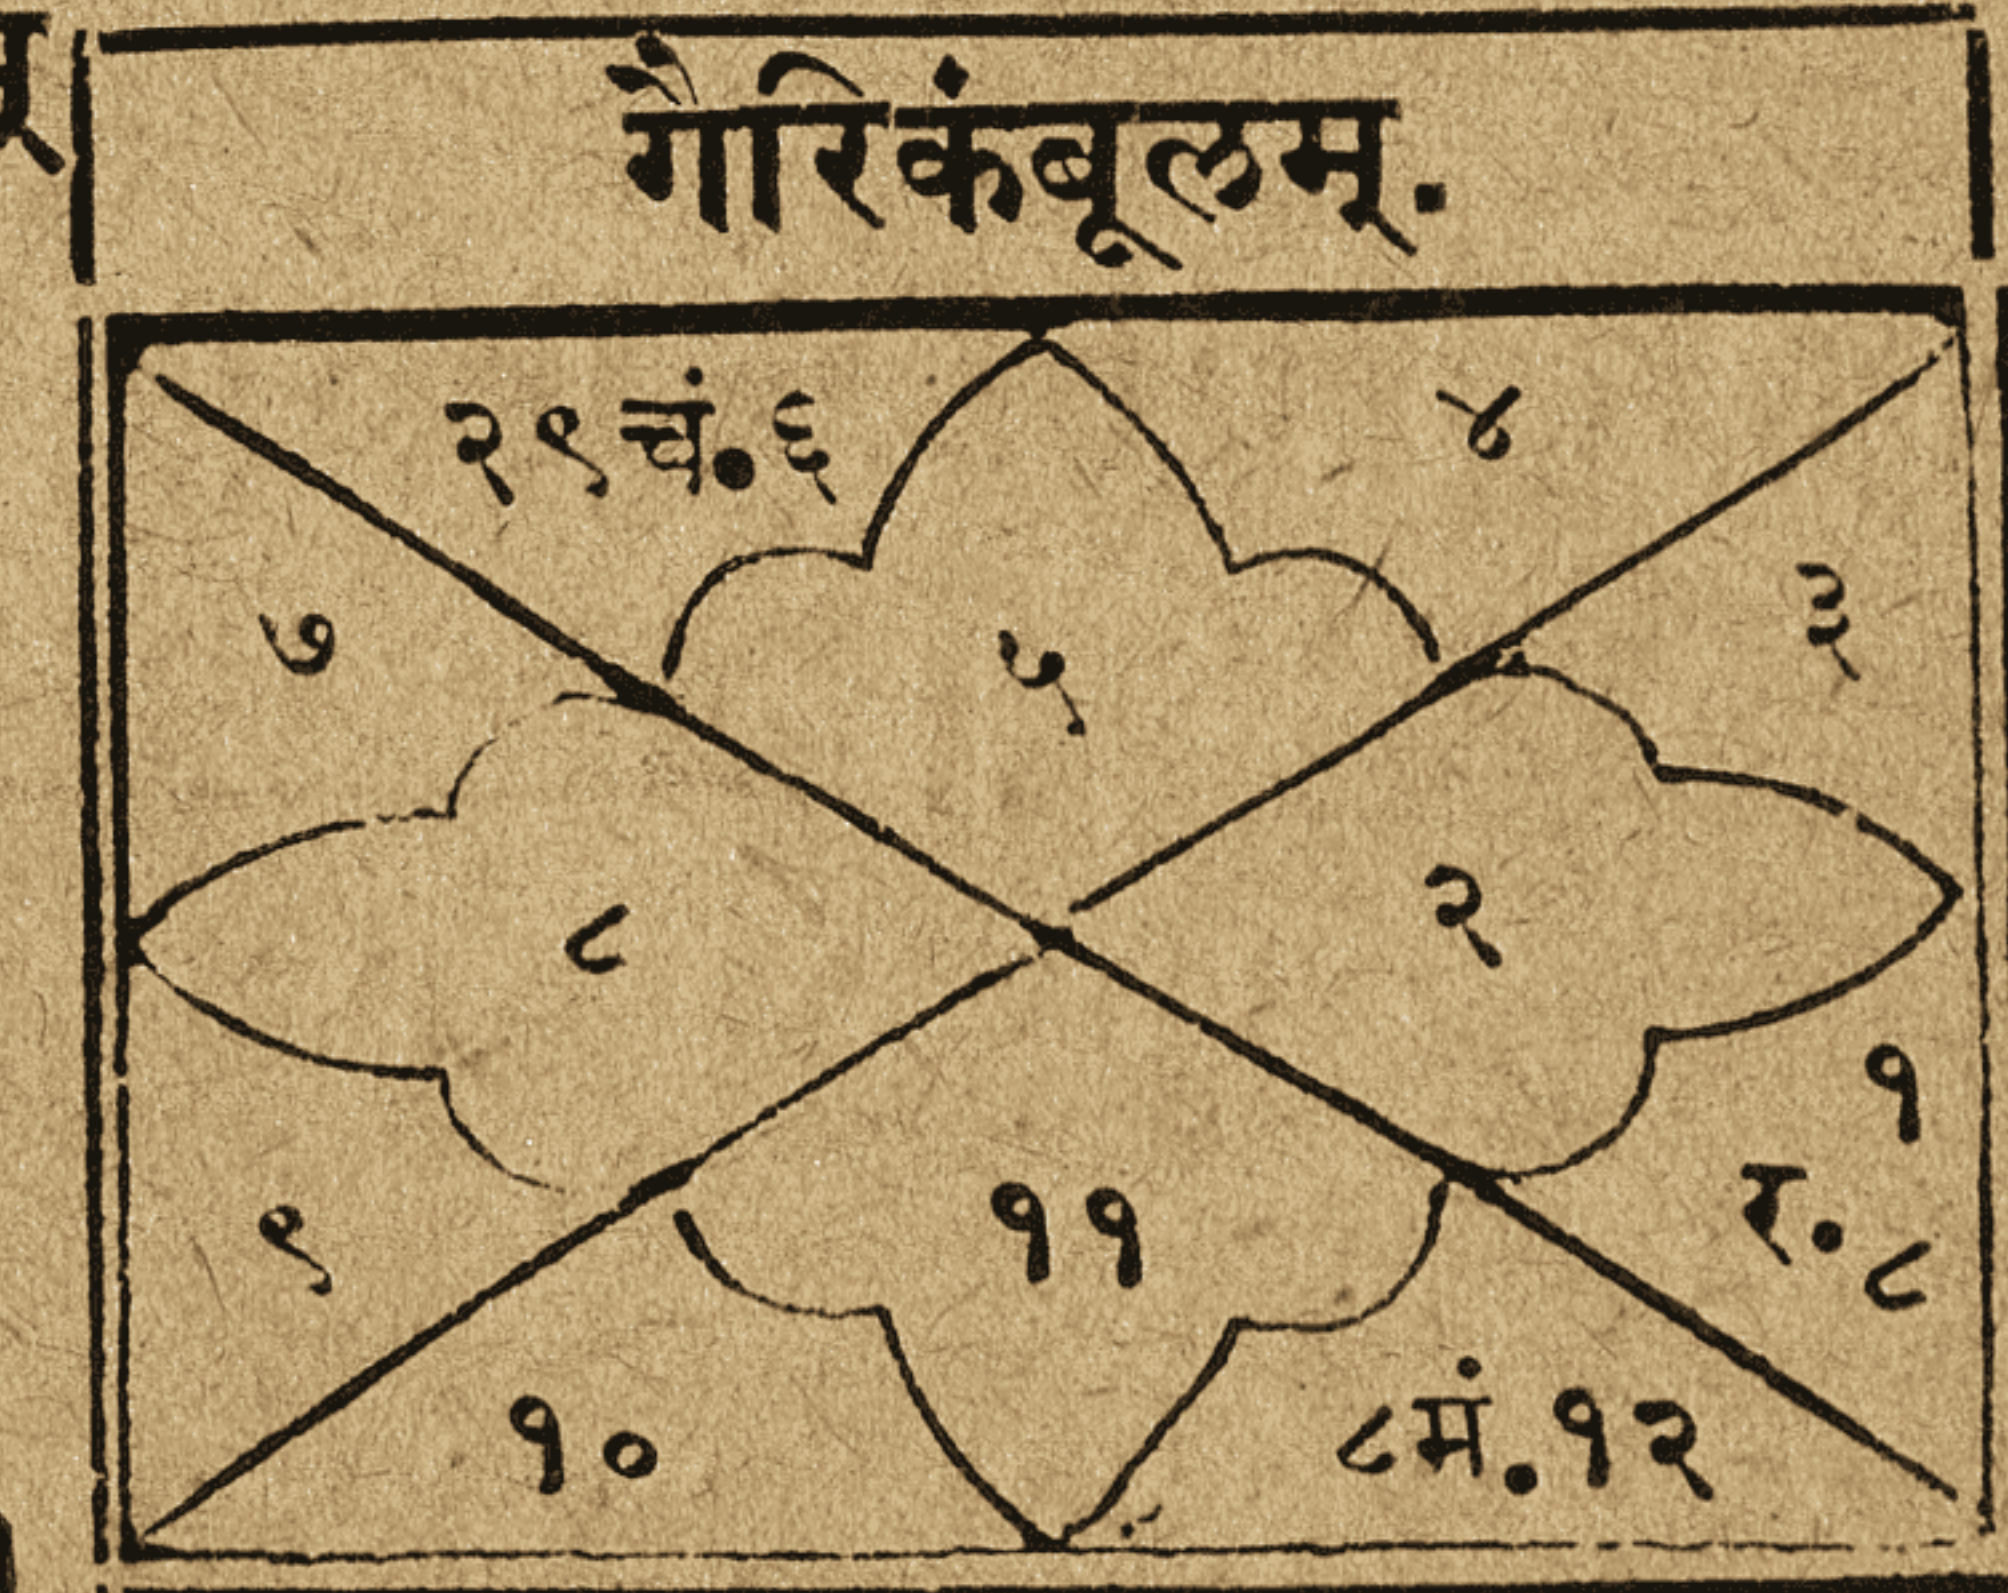 गैरिकंबूलम्.
२९ चं. ६
४
७
५
३
८
२
१
र. ८
९
११
१०
८ मं. १२